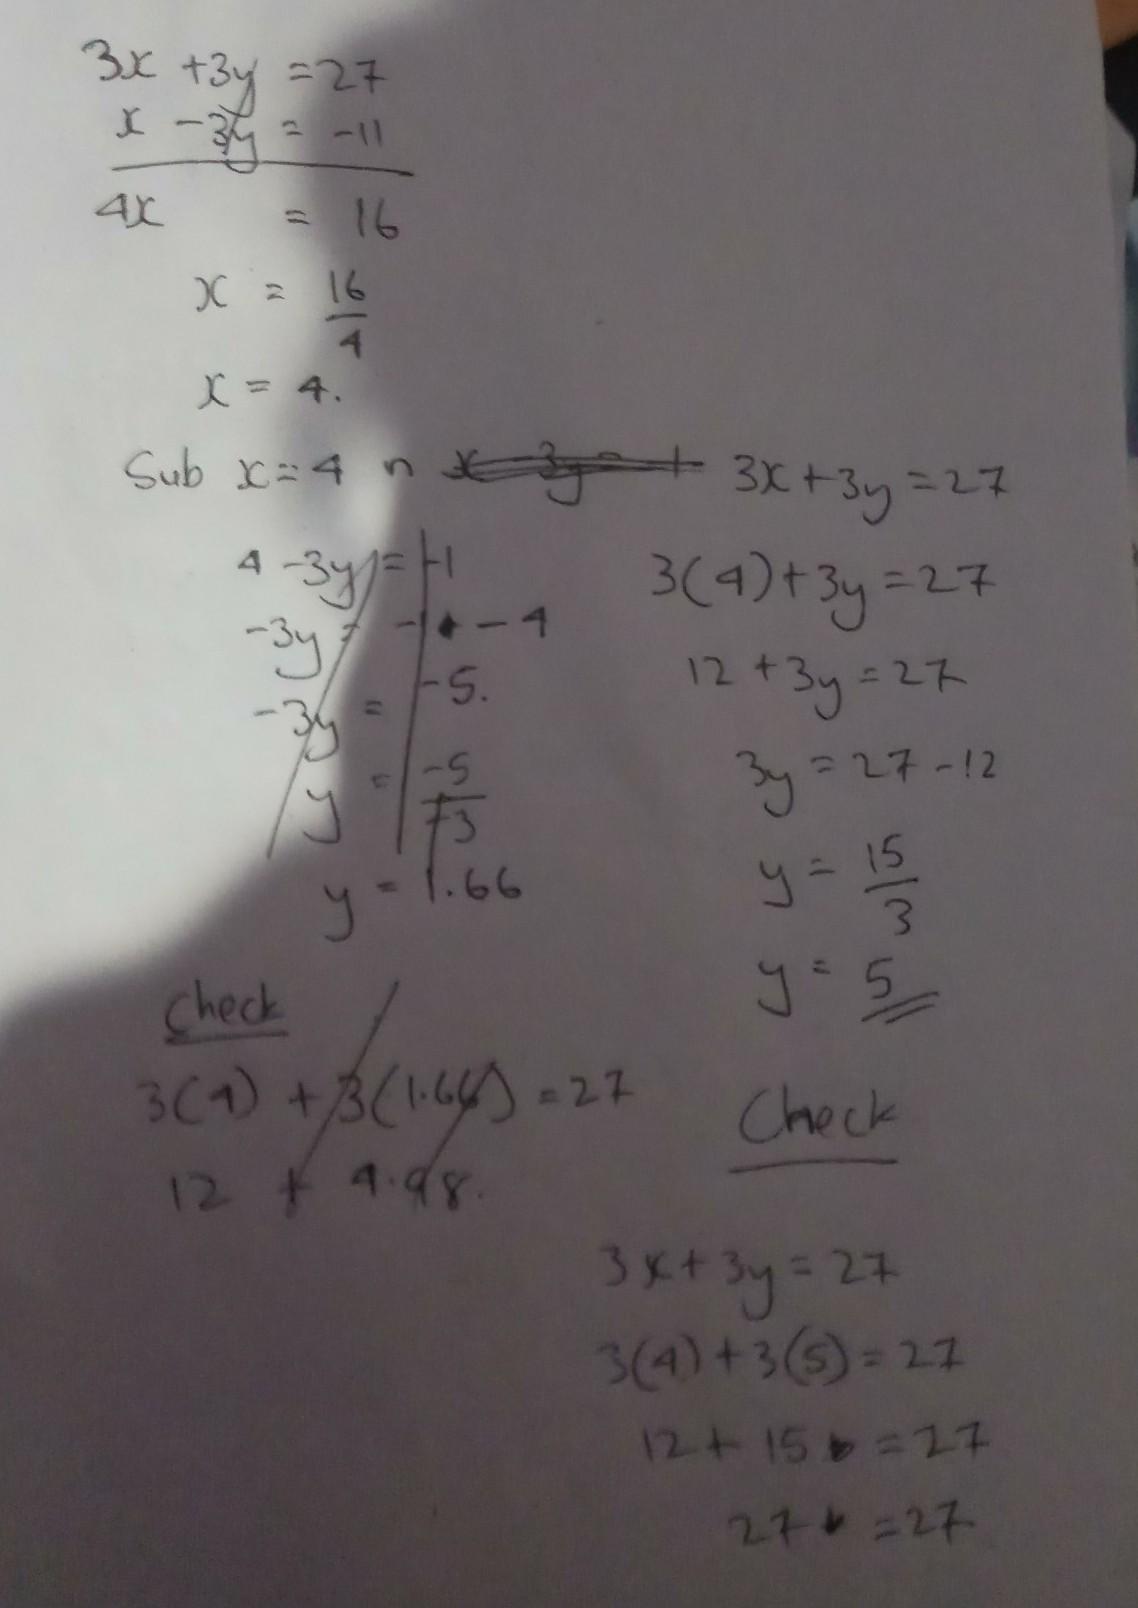 3x + 3y = 27
x - 3y = -11
4x = 16
x = 16/4
x = 4.
Sub x = 4 n 3x + 3y = 27
4 - 3y = -1
-3y = -1 - 4
-3y = -5.
y = -5/-3
y = 1.66
Check
3(4) + 3(1.66) = 27
12 + 4.98.
3(4) + 3y = 27
12 + 3y = 27
3y = 27 - 12
y = 15/3
y = 5
Check
3x + 3y = 27
3(4) + 3(5) = 27
12 + 15 = 27
27 = 27